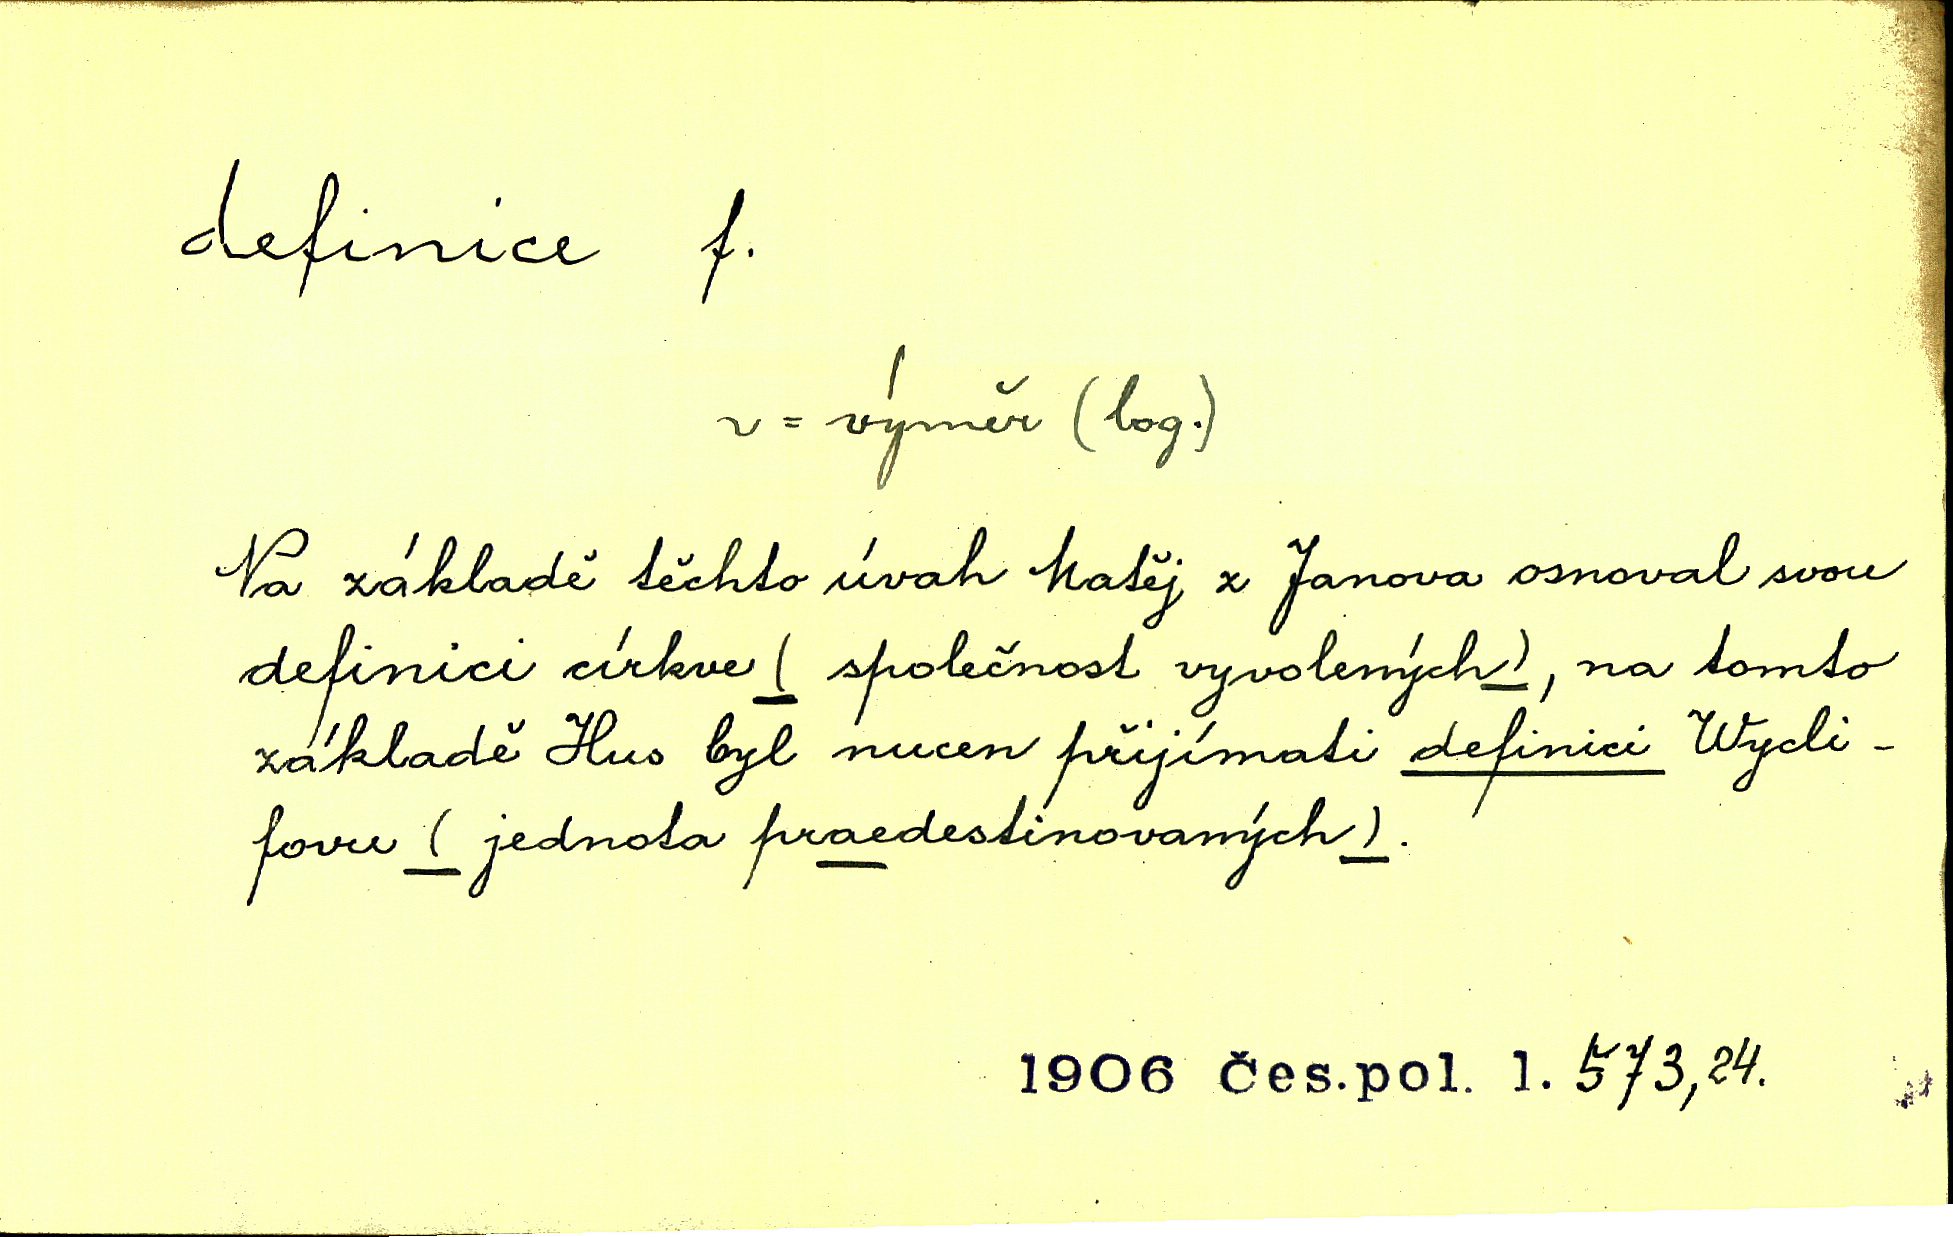 definice f.
v = výměr (log.)
Na základě těchto úvah Matěj z Janova osnoval svou
definici církve ( společnost vyvolených), na tomto
základě Hus byl nucen přijímati definici Wycli-
fovu ( jednota praedestinovaných).
1906 Čes.pol. l. 573,24.